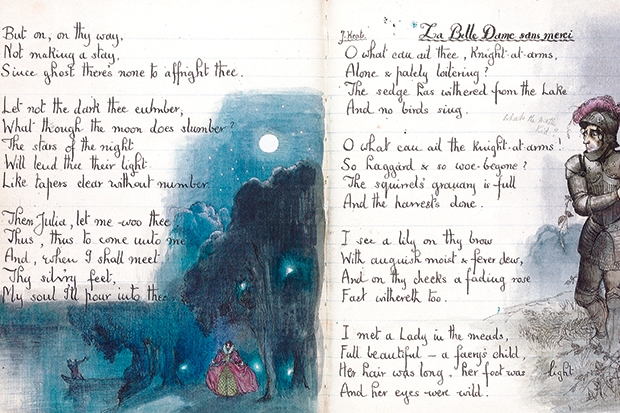 But on, on thy way,
Not making a stay,
Since ghost there's none to affright thee.
Let not the dark thee cumber,
What though the moon does slumber?
The stars of the night
Will lend thee their light
Like tapers clear without number.
Then Julia, let me woo thee
Thus, thus to come unto me
And, when I shall meet
Thy silv'ry feet,
My soul I'll pour into thee.
J. Keats. La Belle Dame sans merci
O what can ail thee, Knight-at-arms,
Alone & palely loitering?
The sedge has withered from the Lake
And no birds sing.
O what can ail the Knight-at-arms!
So haggard & so woe-begone?
The squirrels' granary is full
And the harvest's done.
I see a lily on thy brow
With anguish moist & fever dew,
And on thy cheeks a fading rose
Fast withereth too.
I met a Lady in the meads,
Full beautiful – a faery's child,
Her hair was long, her foot was light
And her eyes were wild.